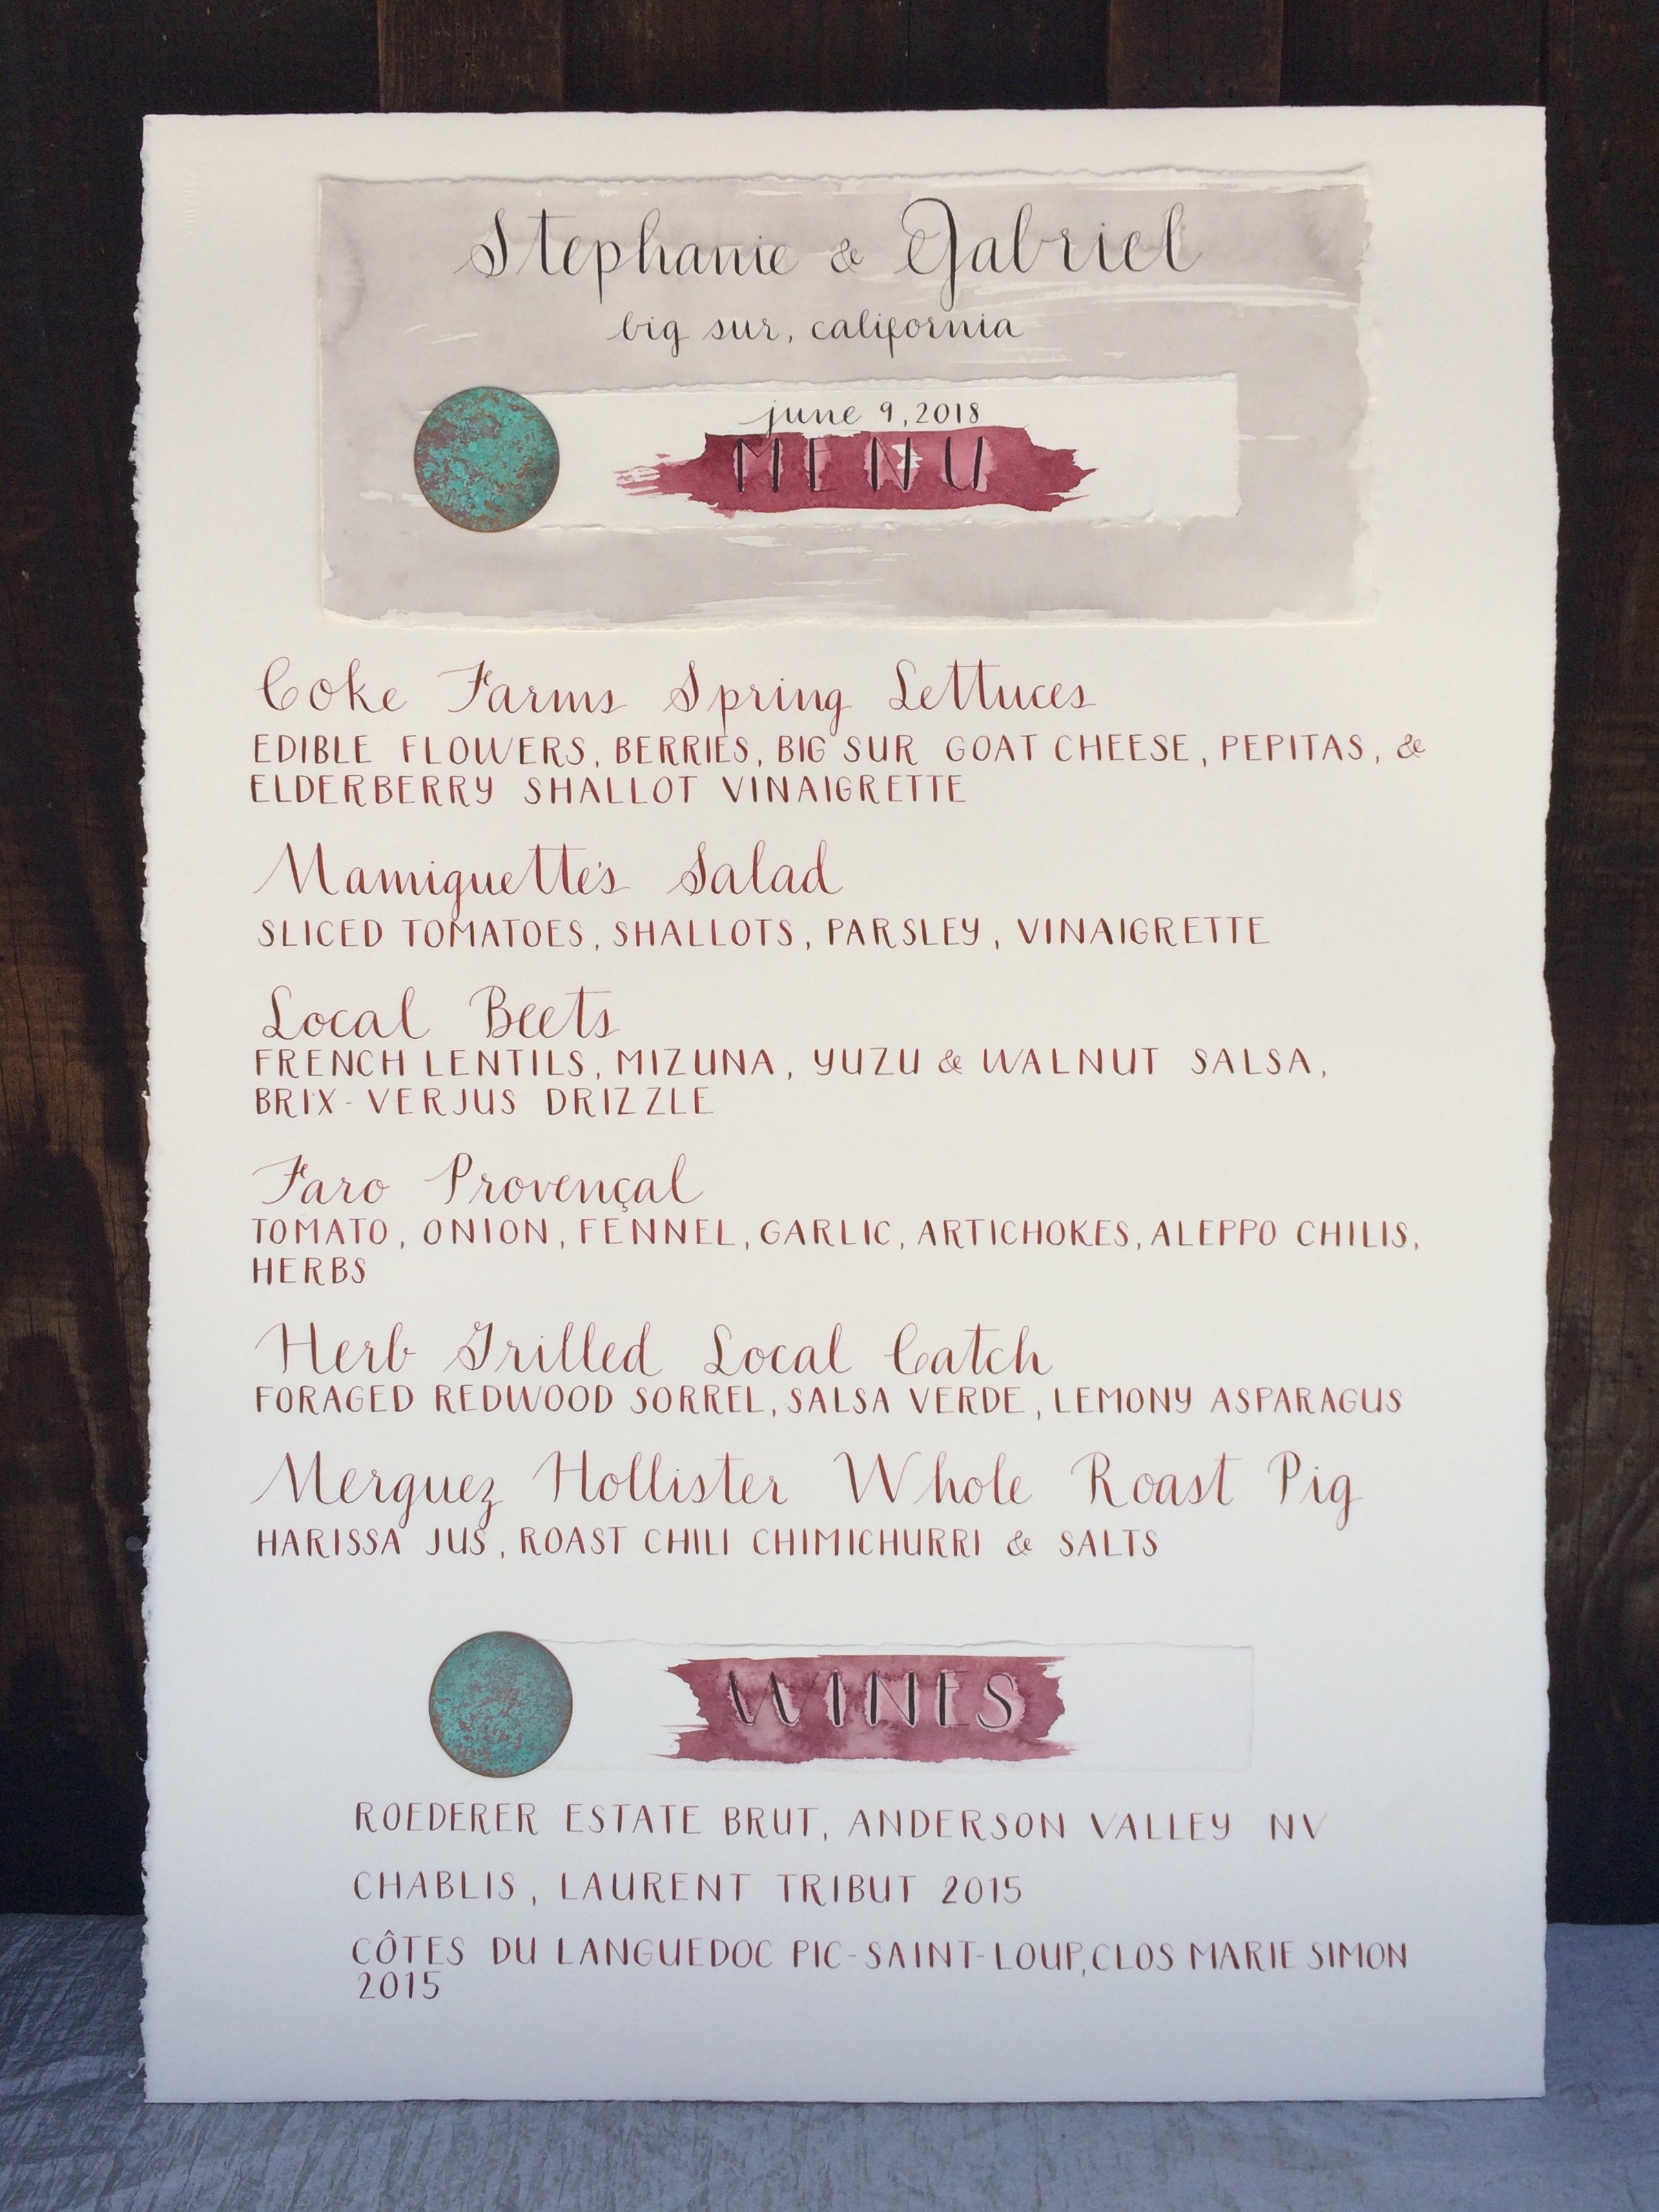 Stephanie & Gabriel
big sur, california
june 9, 2018
MENU
Coke Farms Spring Lettuces
EDIBLE FLOWERS, BERRIES, BIG SUR GOAT CHEESE, PEPITAS, &
ELDERBERRY SHALLOT VINAIGRETTE
Mamiguette's Salad
SLICED TOMATOES, SHALLOTS, PARSLEY, VINAIGRETTE
Local Beets
FRENCH LENTILS, MIZUNA, YUZU & WALNUT SALSA,
BRIX-VERJUS DRIZZLE
Faro Provençal
TOMATO, ONION, FENNEL, GARLIC, ARTICHOKES, ALEPPO CHILIS,
HERBS
Herb Grilled Local Catch
FORAGED REDWOOD SORREL, SALSA VERDE, LEMONY ASPARAGUS
Merguez Hollister Whole Roast Pig
HARISSA JUS, ROAST CHILI CHIMICHURRI & SALTS
WINES
ROEDERER ESTATE BRUT, ANDERSON VALLEY NV
CHABLIS, LAURENT TRIBUT 2015
CÔTES DU LANGUEDOC PIC-SAINT-LOUP, CLOS MARIE SIMON
2015